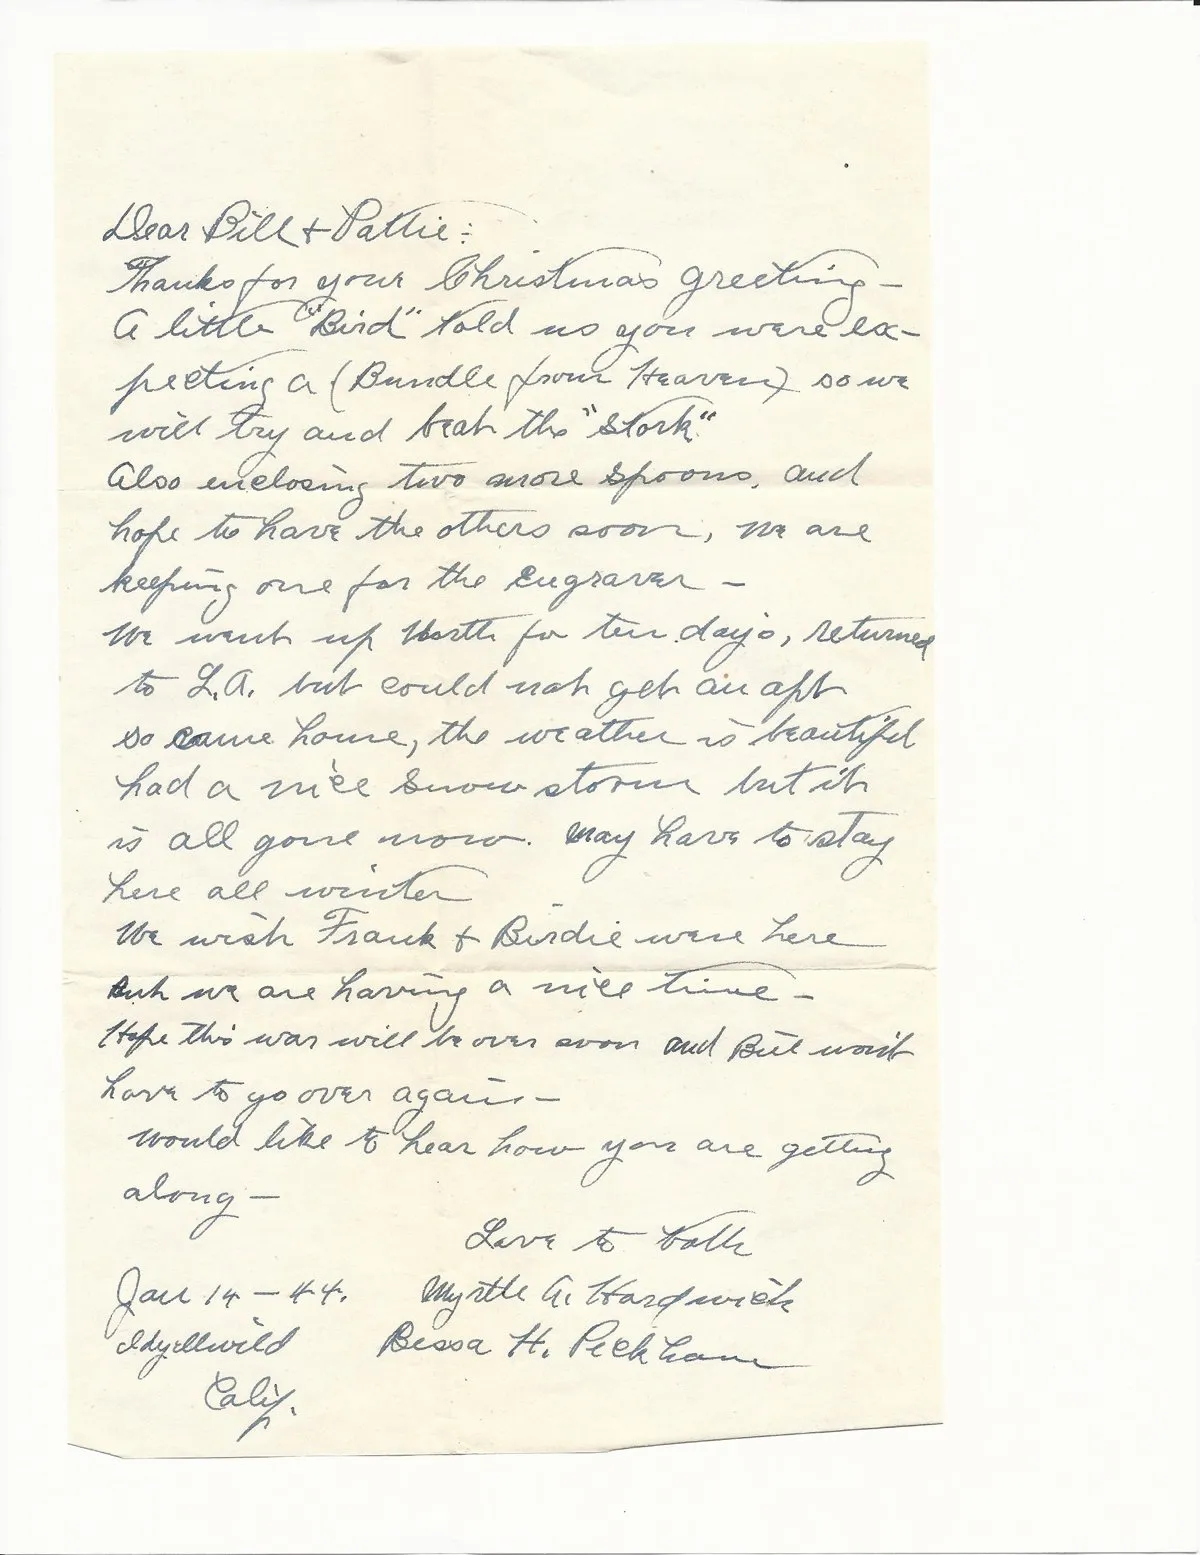 Dear Bill & Pattie:
Thanks for your Christmas greeting –
A little "Bird" told us you were ex-
pecting a (Bundle from Heaven) so we
will try and beat the "Stork".
Also enclosing two more spoons, and
hope to have the others soon, we are
keeping one for the engraver –
We went up North for ten days, returned
to L.A. but could not get an apt
so came home, the weather is beautiful
had a nice snow storm but it
is all gone now. May have to stay
here all winter
We wish Frank & Birdie were here
But we are having a nice time –
Hope this war will be over soon and Bill won't
have to go over again –
Would like to hear how you are getting
along –
Love to both
Jan 14 – 44. Myrtle A. Hardwick
Idyllwild Bessa H. Peckham
Calif.